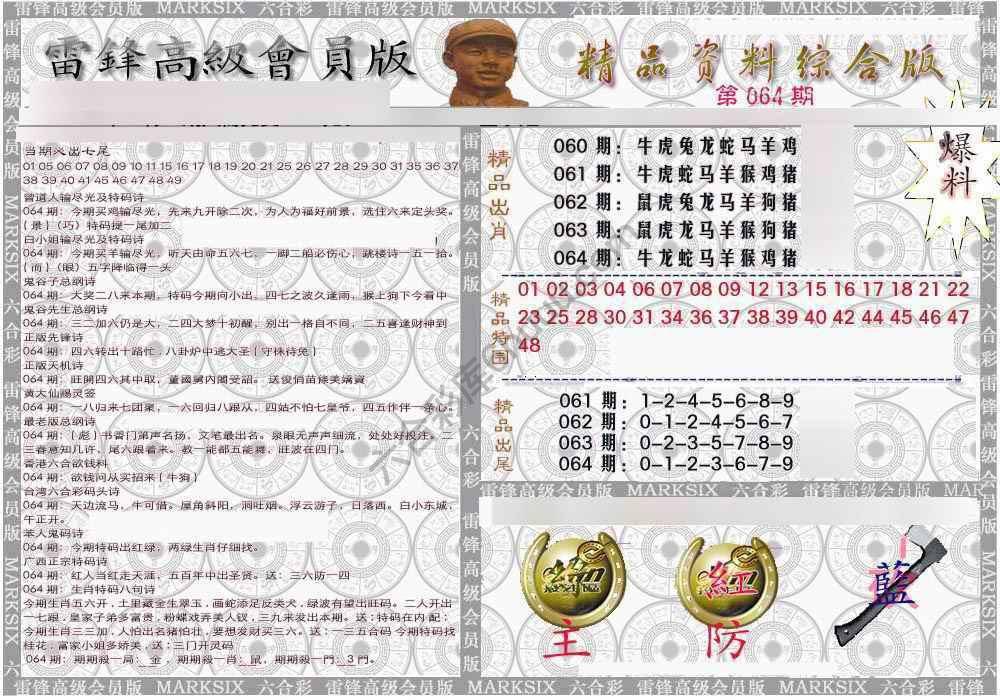 雷锋高级会员版 MARKSIX 六合彩 雷锋高级会员版 MARKSIX 六合彩 雷锋高级会员版
雷鋒高級會員版
精品资料综合版
第064期
当期必出七尾
01 05 06 07 08 09 10 11 15 16 17 18 19 20 21 25 26 27 28 29 30 31 35 36 37
38 39 40 41 45 46 47 48 49
曾道人输尽光及特码诗
064期：今期买鸡输尽光，先来九开除二次，为人为福好前景，选住六来定头奖。
{景}（巧）特码提一尾加二
白小姐输尽光及特码诗
064期：今期买羊输尽光，听天由命五六七，一脚二船必伤心，跳楼诗一五一拾。
{而}（眼）五字降临得一头
鬼谷子总纲诗
064期：大奖二八来本期，特码今期向小出，四七之波久逢雨，猴上狗下今看中
鬼谷先生总纲诗
064期：三二加六仍是大，二四大梦十初醒，别出一格自不同，二五喜逢财神到
正版先锋诗
064期：四六转出十路忙，八卦炉中逃大圣{守株待兔}
正版天机诗
064期：旺開四六其中取，董國舅内閣受詔。送俊俏苗條美嬌資
黄大仙赐灵签
064期：一八归来七团聚，一六回归八跟从，四姑不怕七皇爷，四五作伴一条心。
最老版总纲诗
064期：{彪}书香门第声名扬，文笔最出名。泉眼无声声细流，处处好投注。二
三春意知几许，尾六跟着来。教一能都五能舞，旺波在四门。
香港六合欲钱料
064期：欲钱问从实招来{牛狗}
台湾六合彩码头诗
064期：天边流马，牛可借。屋角斜阳，洞吐烟。浮云游子，日落西。白小东城，
午正开。
苯人鬼码诗
064期：今期特码出红绿，两绿生肖仔细找。
广西正宗特码诗
064期：红人当红走天涯，五百年中出圣贤。送：三六防一四
064期：生肖特码八句诗
今期生肖五六开，土里藏金生翠玉，画蛇添足反类犬，绿波有望出旺码。二人开出
一七跟，皇家子弟多富贵，粉蝶戏弄美人钗，三九来发出本期。送：特码在内 配：
今期生肖三三加，人怕出名猪怕壮，要想发财买三六。送：一三五合码 今期特码找
桂花，富家小姐多娇美，送：三门开灵码
064期：期期殺一局：金，期期殺一肖：鼠，期期殺一門：3門。
精品出肖
060 期：牛虎兔龙蛇马羊鸡
061 期：牛虎蛇马羊猴鸡猪
062 期：鼠虎兔龙马羊狗猪
063 期：鼠虎龙马羊猴狗猪
064 期：牛龙蛇马羊猴鸡猪
爆料
精品特围
01 02 03 04 06 07 08 09 12 13 15 16 17 18 21 22
23 25 28 30 31 34 36 37 38 39 40 42 44 45 46 47
48
精品出尾
061 期：1-2-4-5-6-8-9
062 期：0-1-2-4-5-6-7
063 期：0-2-3-5-7-8-9
064 期：0-1-2-3-6-7-9
雷锋高级会员版 MARKSIX 六合彩 雷锋高级会员版 MAR
红
藍
主
防
雷锋高级会员版 MARKSIX 六合彩 雷锋高级会员版 MARKSIX 六合彩 雷锋高级会员版